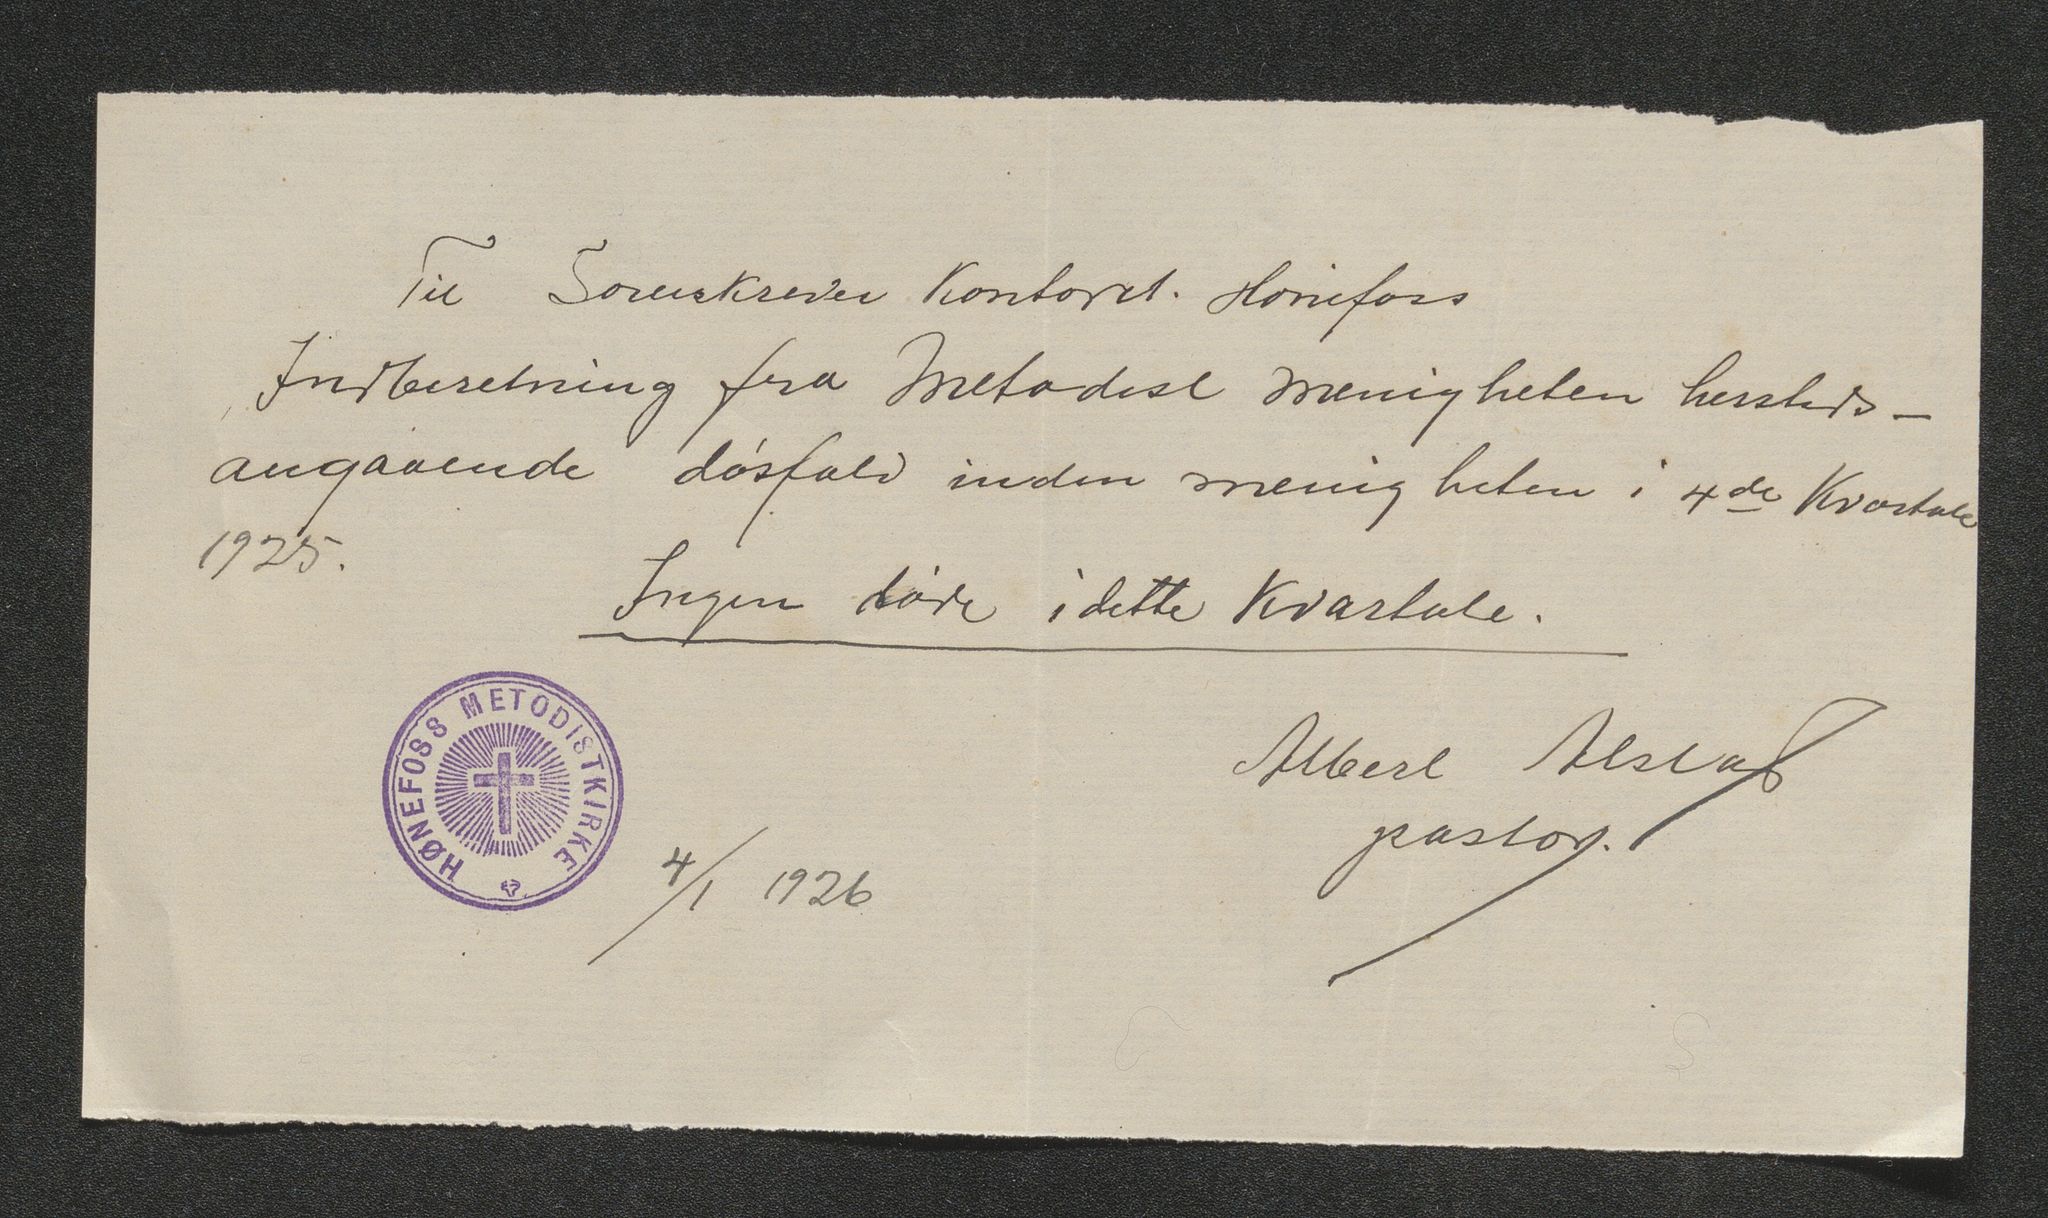 Til Sorenskriver Kontoret. Hönefoss
Indberetning fra Metodist menigheten hersteds -
angaaende dösfald inden menigheten i 4de Kvartale
1925.
Ingen döde i dette Kvartale.
HØNEFOSS METODISTKIRKE
Albert Alstad
pastor.
4/1 1926